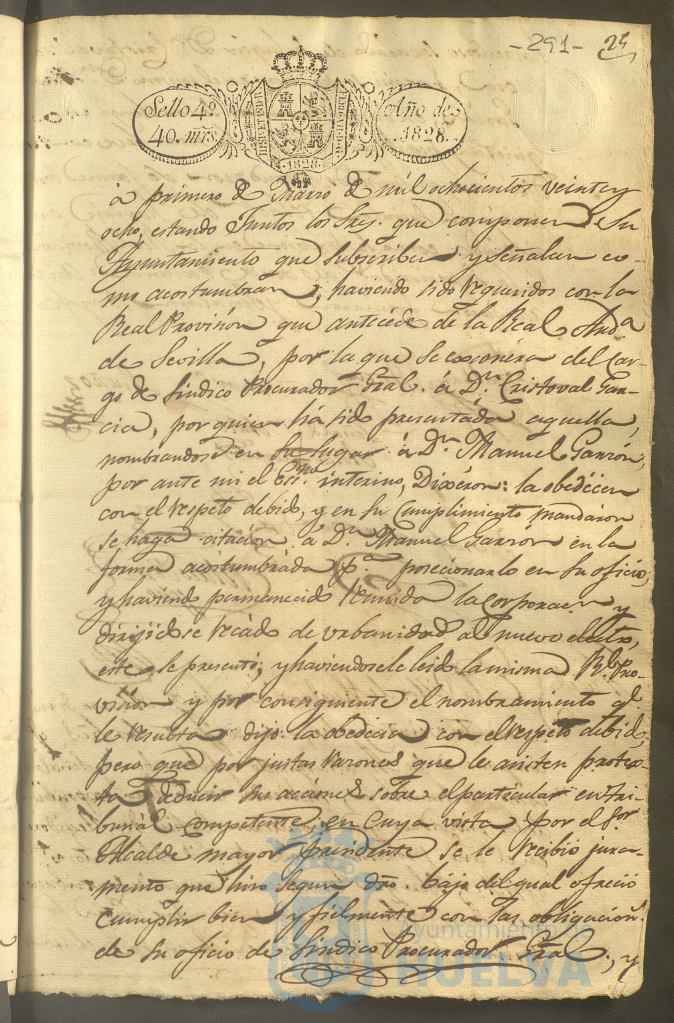 -291- 25
Sello 4º. 40. mrs.
HISP. ET IND. R.
1828
Año de 1828.
à primero de Marzo de mil ochocientos veinte y
ocho, estando Juntos los Sres. que componen Su
Ayuntamiento que subscriben y señalan co-
mo acostumbran, haviendo sido requeridos con la
Real Provision que antecede de la Real Auda
de Sevilla, por la que se exonera del Car-
go de Sindico Procurador Gral. á Dn. Cristoval Gar-
cia, por quien ha sido presentada aquella,
nombrandose en su lugar á Dn. Manuel Garzón,
por ante mi el Esno. interino, Dixeron: la obedecen
con el respeto debido, y en su Cumplimiento mandaron
se haga citacion á Dn. Manuel Garzón en la
forma acostumbrada pa. posecionarlo en su oficio;
y haviendo permanecido reunida la Corporacn. y
dirijidose recado de urbanidad al nuevo electo,
este se presentó; y haviendosele leido la misma Rl. Pro-
vision y por consiguiente el nombramiento qe.
le resulta dijo: la obedecia con el respeto debido,
pero que por justas razones que le asisten protex-
ta deducir sus acciones sobre el particular en tri-
bunal competente; en cuya vista por el Sor.
Alcalde mayor Presidente se le recibió jura-
mento que hizo segun dro. bajo del qual ofreció
cumplir bien y fielmente con las obligacions.
de su oficio de Sindico Procurador Gral., y
Ayuntamiento de
HUELVA